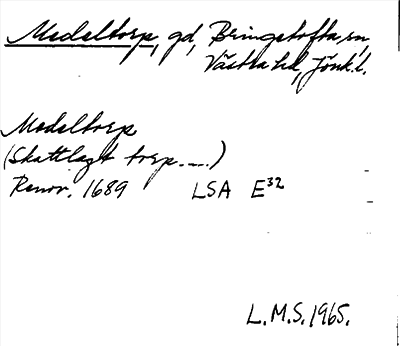 Medeltorp, gd, Bringetofta sn,
Västra hd, Jönk.l.
Medeltorp
(Skattlagt torp.__.)
Renov. 1689 LSA E32
L.M.S. 1965.